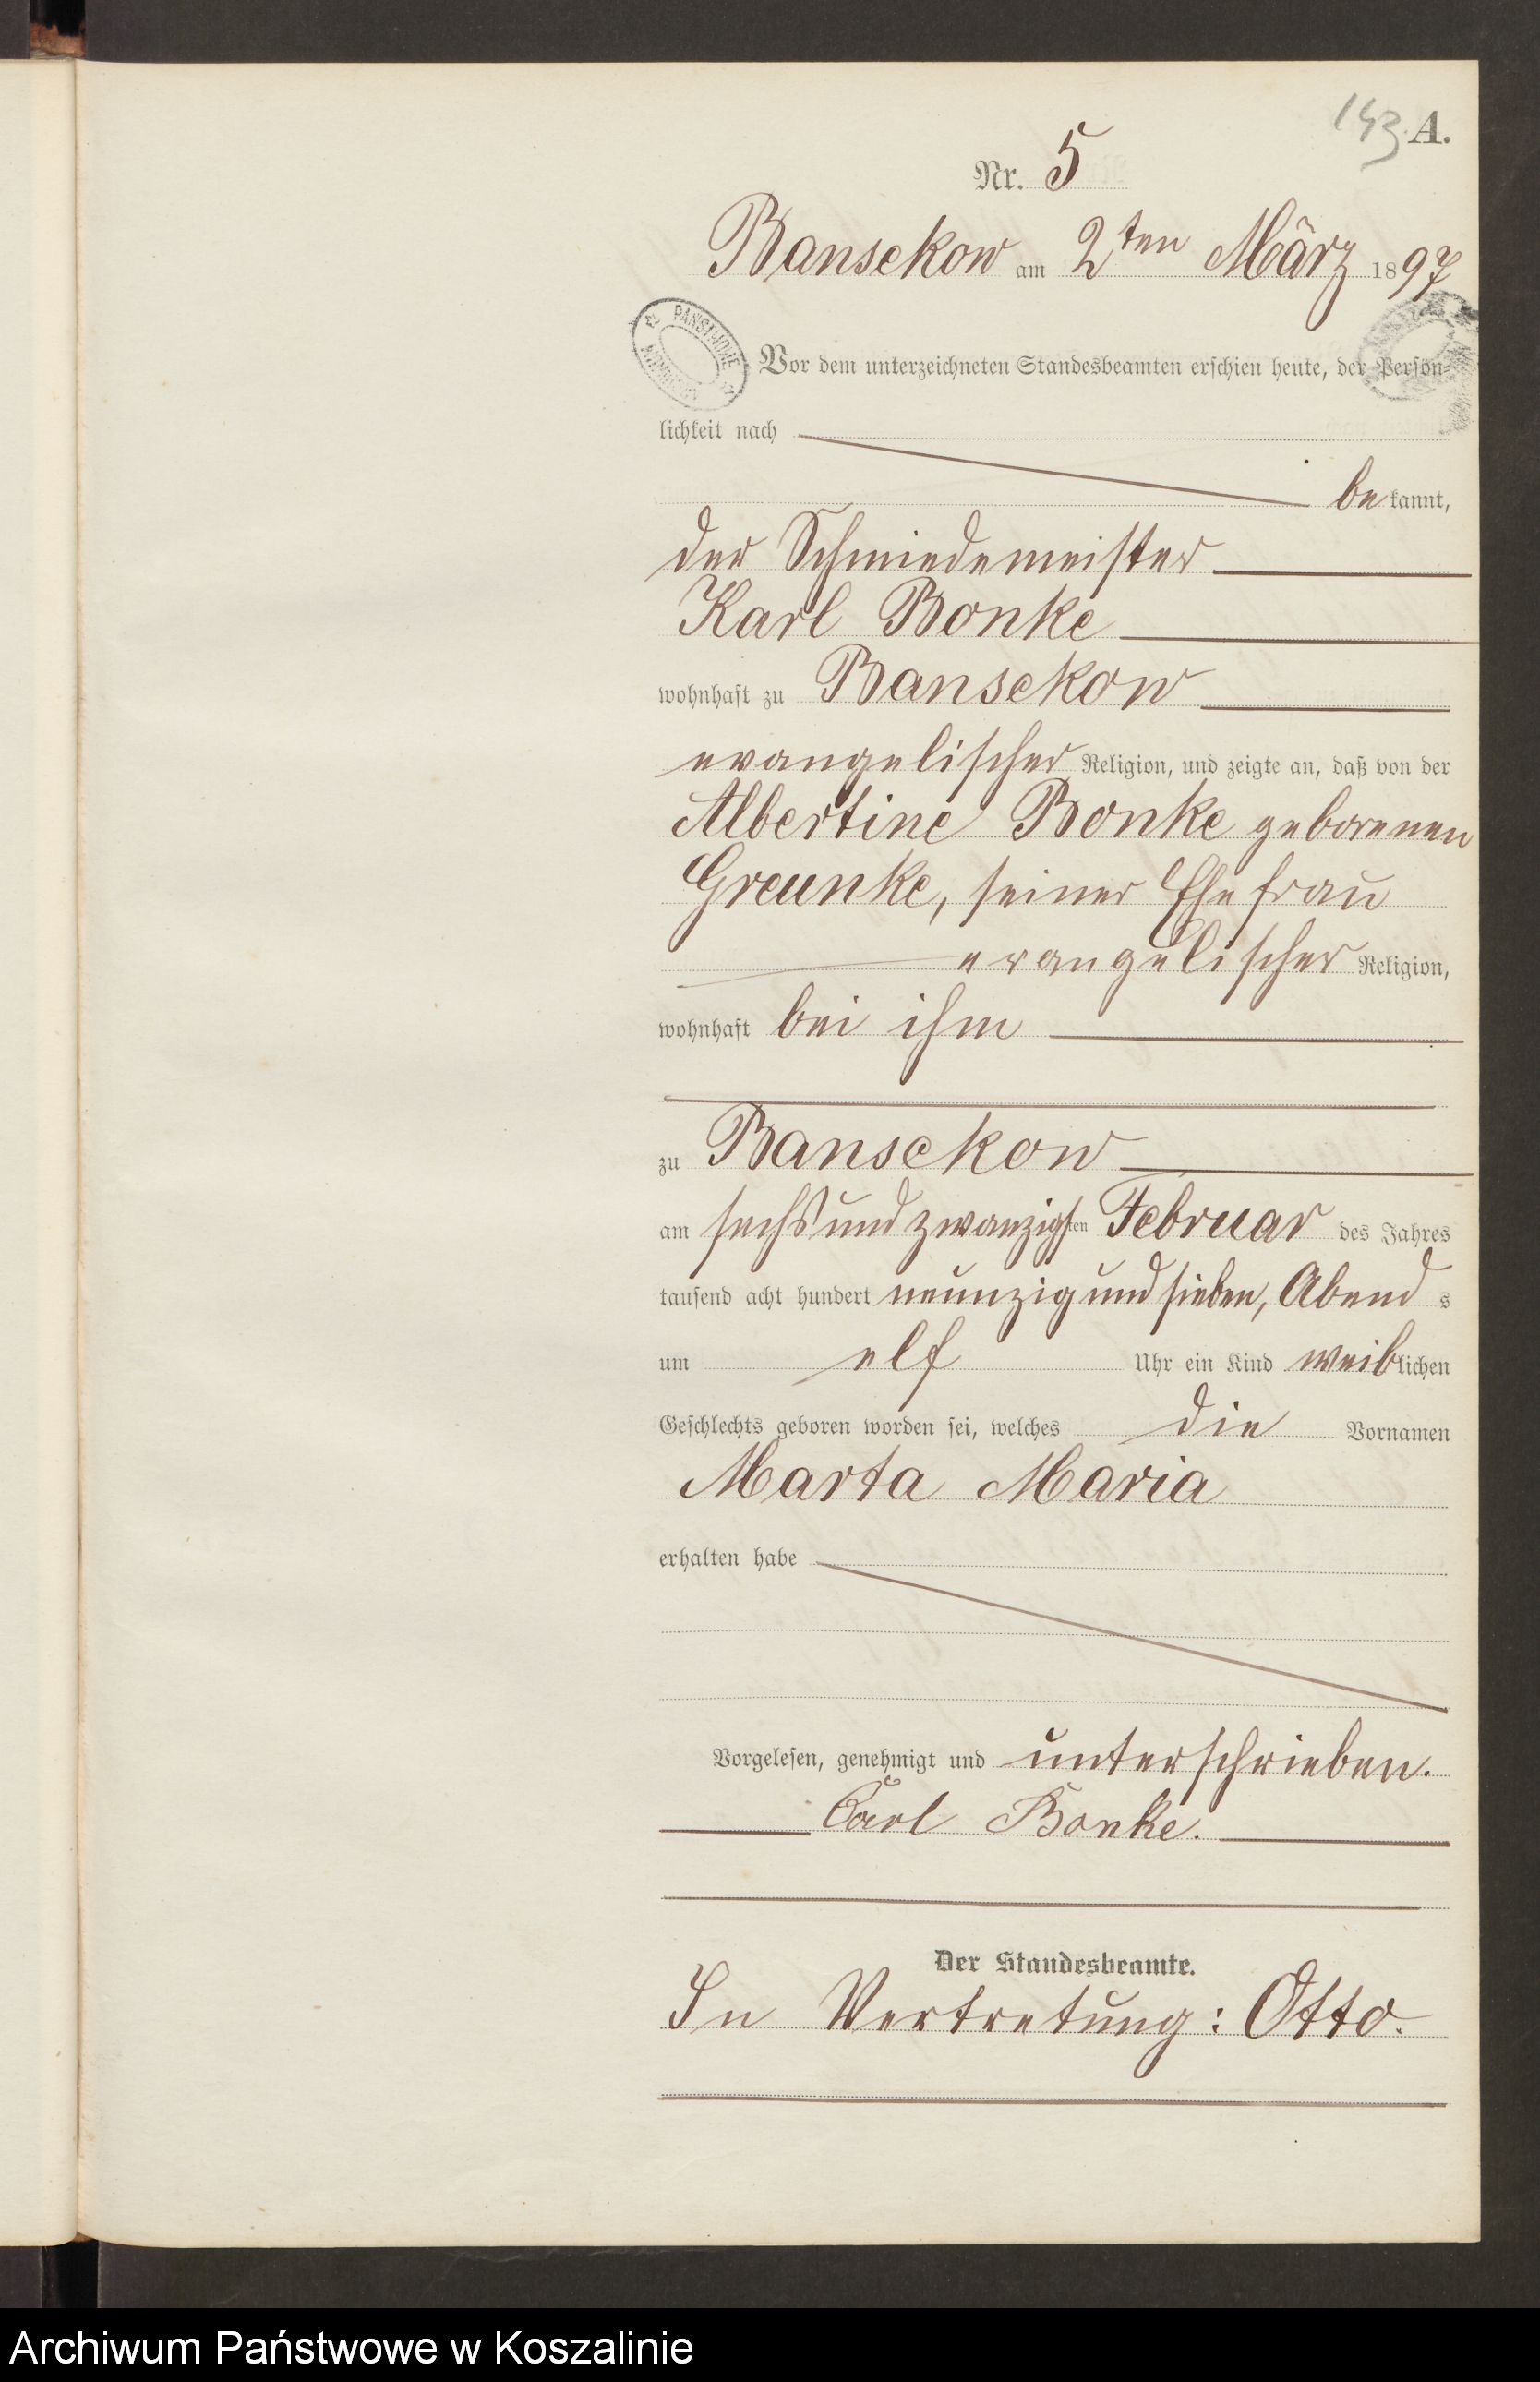 143. A.
Nr. 5
Bansekow am 2ten März 1897
PAŃSTWOWE
Vor dem unterzeichneten Standesbeamten erschien heute, der Persön-
lichkeit nach
bekannt,
der Schmiedemeister
Karl Bonke
wohnhaft zu Bansekow
evangelischer Religion, und zeigte an, daß von der
Albertine Bonke geborenen
Greunke, seiner Ehefrau
evangelischer Religion,
wohnhaft bei ihm
zu Bansekow
am sechsundzwanzigsten Februar des Jahres
tausend acht hundert neunzig und sieben, Abends
um elf Uhr ein Kind weiblichen
Geschlechts geboren worden sei, welches die Vornamen
Marta Maria
erhalten habe
Vorgelesen, genehmigt und unterschrieben.
Carl Bonke.
Der Standesbeamte.
In Vertretung: Otto.
Archiwum Państwowe w Koszalinie